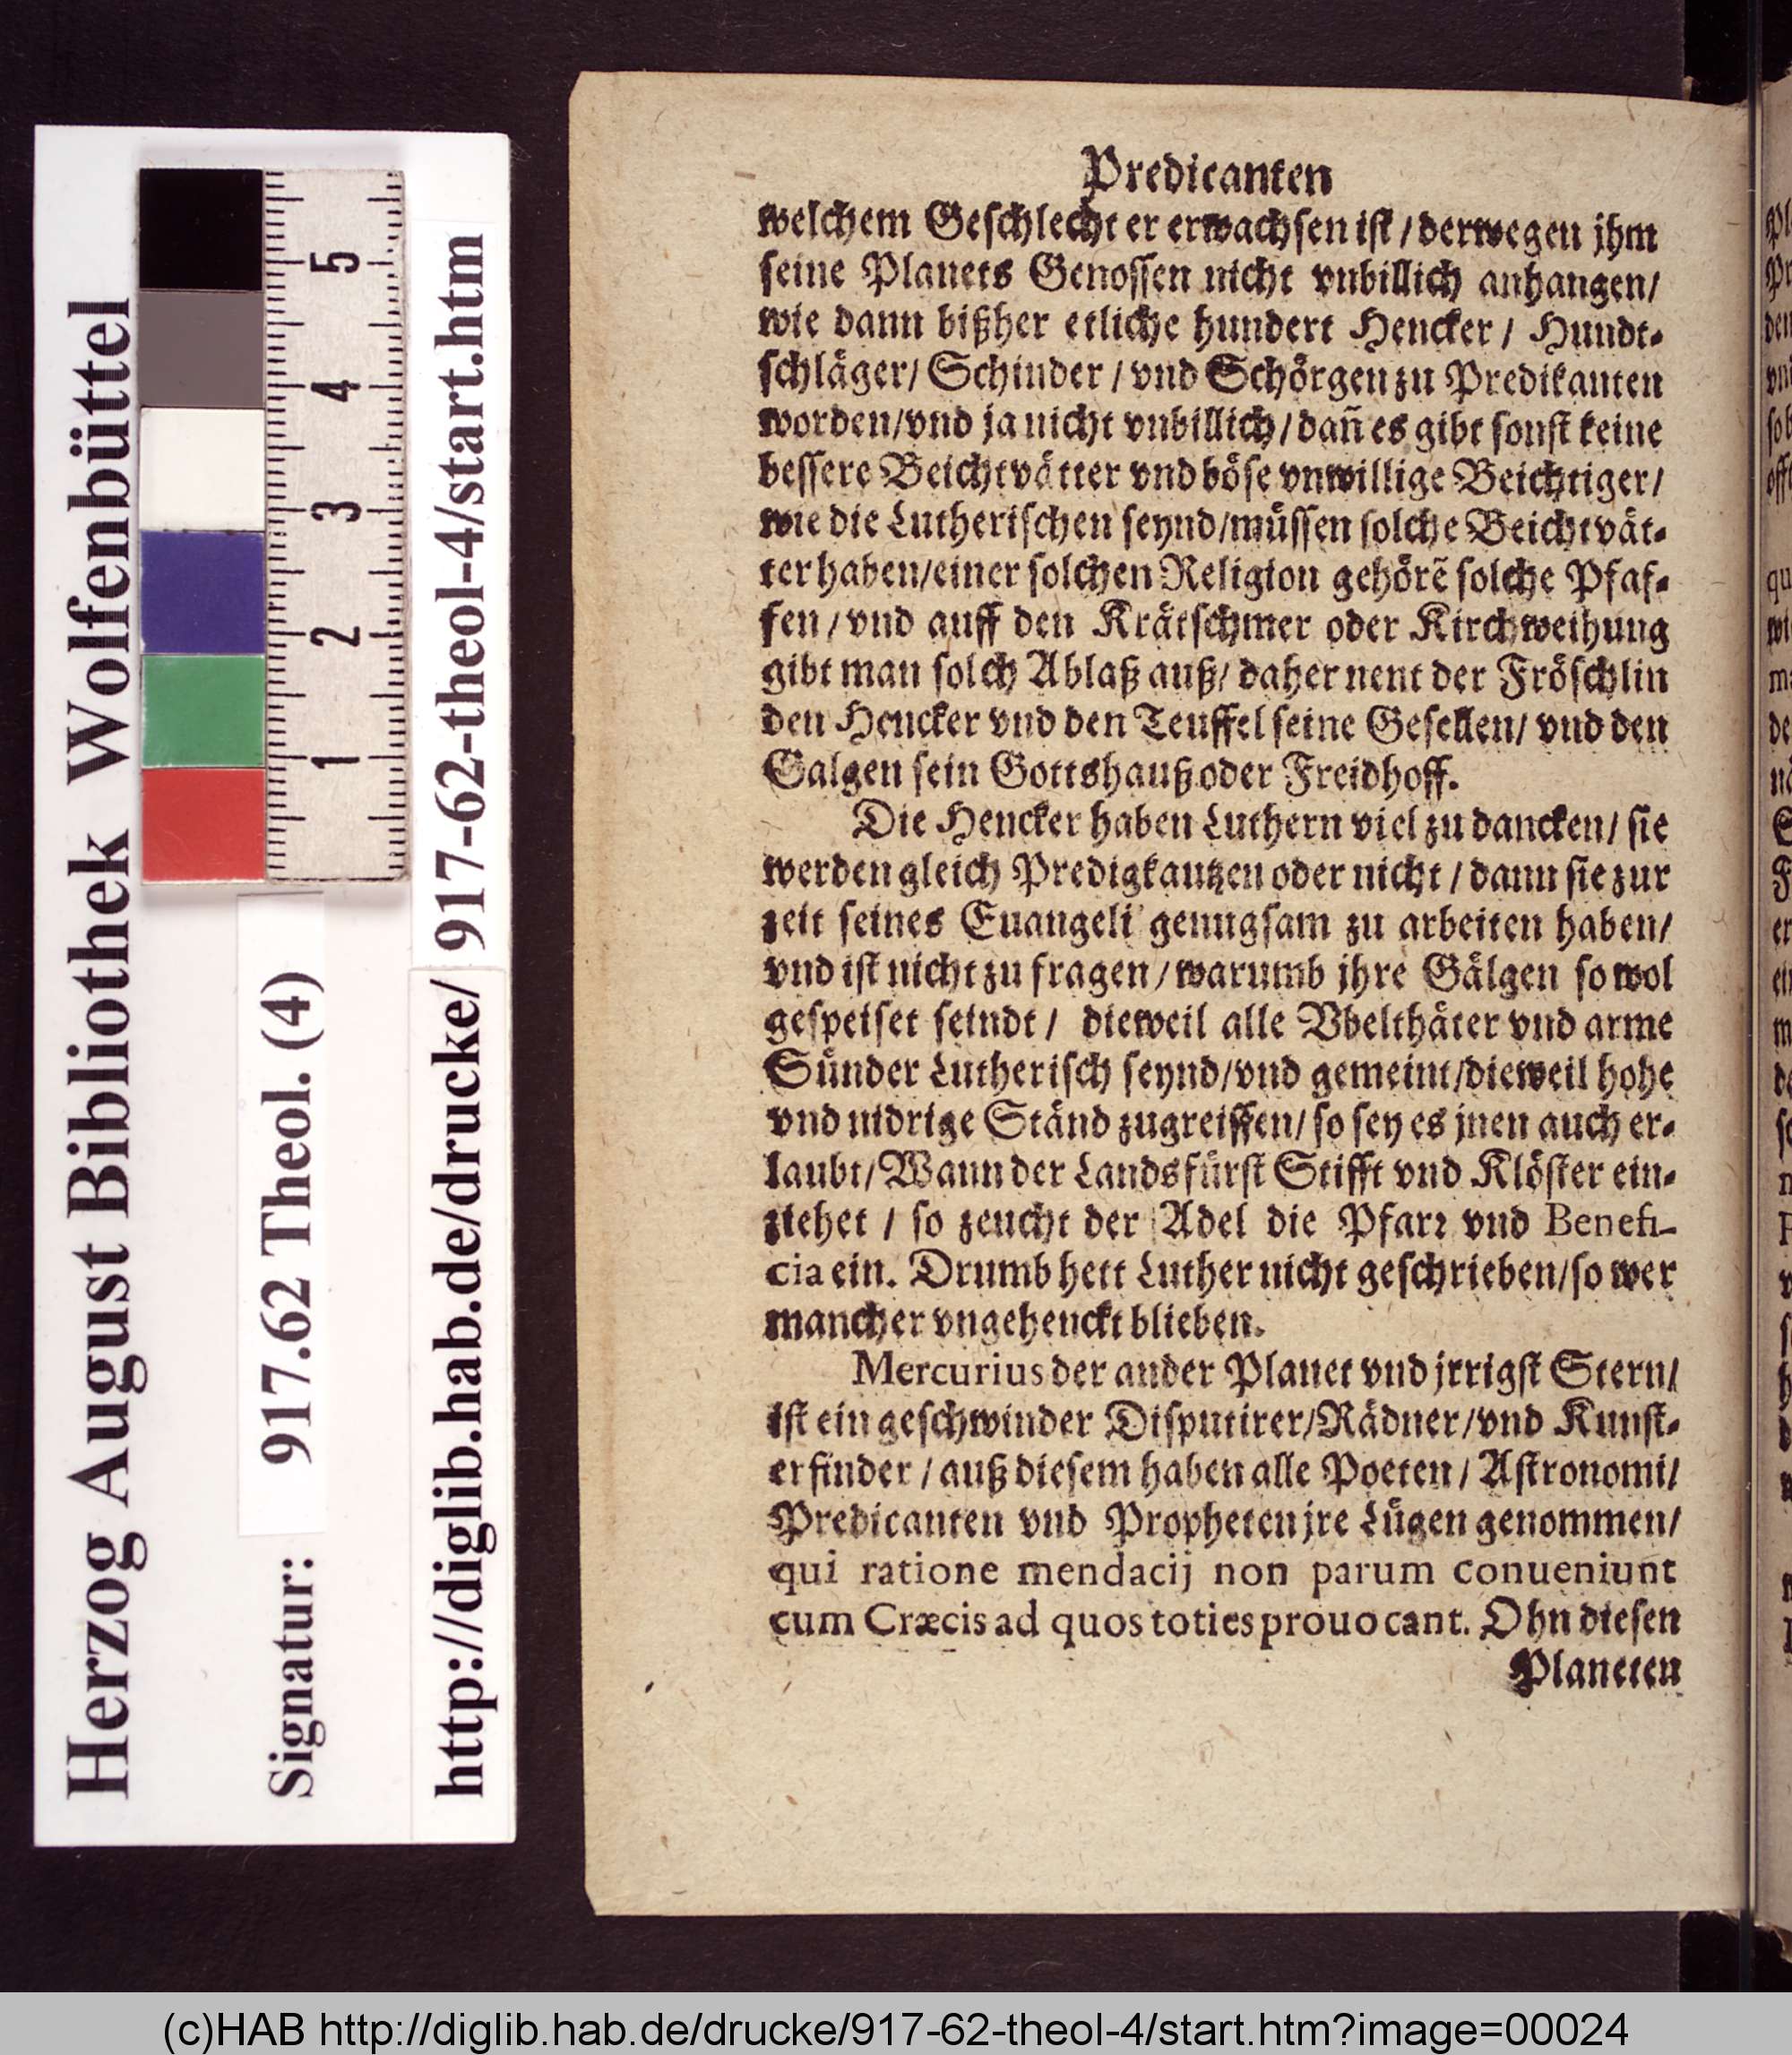 Predicanten
welchem Geschlecht er erwachsen ist / derwegen jhm
seine Planets Genossen nicht vnbillich anhangen/
wie dann bißher etliche hundert Hencker / Hundt-
schläger/ Schinder / vnd Schörgen zu Predikanten
worden/vnd ja nicht vnbillich / dañ es gibt sonst keine
bessere Beichtvätter vnd böse vnwillige Beichtiger/
wie die Lutherischen seynd/müssen solche Beichtvät-
ter haben/einer solchen Religion gehörẽ solche Pfaf-
fen / vnd auff den Krätschmer oder Kirchweihung
gibt man solch Ablaß auß/ daher nent der Fröschlin
den Hencker vnd den Teuffel seine Gesellen/ vnd den
Galgen sein Gottshauß oder Freidhoff.
Die Hencker haben Luthern viel zu dancken/ sie
werden gleich Predigkautzen oder nicht / dann sie zur
zeit seines Euangeli genugsam zu arbeiten haben/
vnd ist nicht zu fragen / warumb jhre Gälgen so wol
gespeiset seindt / dieweil alle Vbelthäter vnd arme
Sünder Lutherisch seynd/vnd gemeint/dieweil hohe
vnd nidrige Ständ zugreiffen/ so sey es jnen auch er-
laubt/ Wann der Landsfürst Stifft vnd Klöster ein-
ziehet / so zeucht der Adel die Pfarr vnd Benefi-
cia ein. Drumb hett Luther nicht geschrieben/so wer
mancher vngehenckt blieben.
Mercurius der ander Planet vnd jrrigst Stern/
ist ein geschwinder Disputirer/Rädner/vnd Kunst-
erfinder / auß diesem haben alle Poeten / Astronomi/
Predicanten vnd Propheten jre Lügen genommen/
qui ratione mendacij non parum conueniunt
cum Cræcis ad quos toties prouocant. Ohn diesen
Planeten
Herzog August Bibliothek Wolfenbüttel
Signatur: 917.62 Theol. (4)
http://diglib.hab.de/drucke/ 917-62-theol-4/start.htm
5
4
3
2
1
(c)HAB http://diglib.hab.de/drucke/917-62-theol-4/start.htm?image=00024